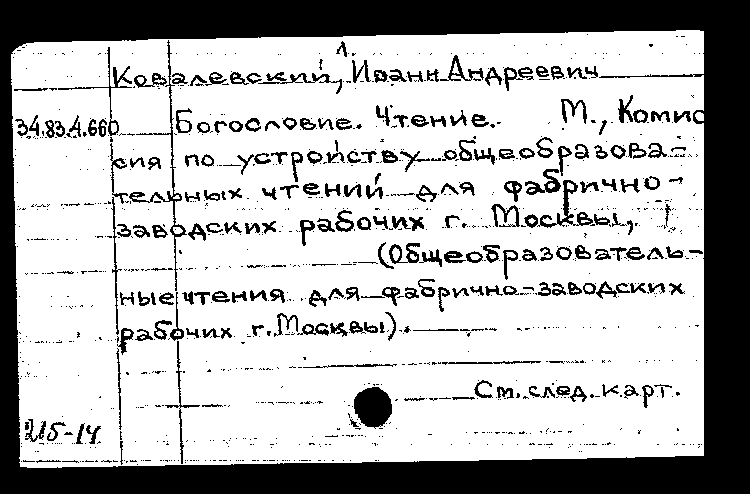 1.
Ковалевский, Иванн Андреевич
34.83.4.660 Богословие. Чтение. М., Комис
сия по устройству общеобразова-
тельных чтений для фабрично-
заводских рабочих г. Москвы,
(Общеобразователь-
ные чтения для фабрично-заводских
рабочих г. Москвы).
См. след. карт.
215-14